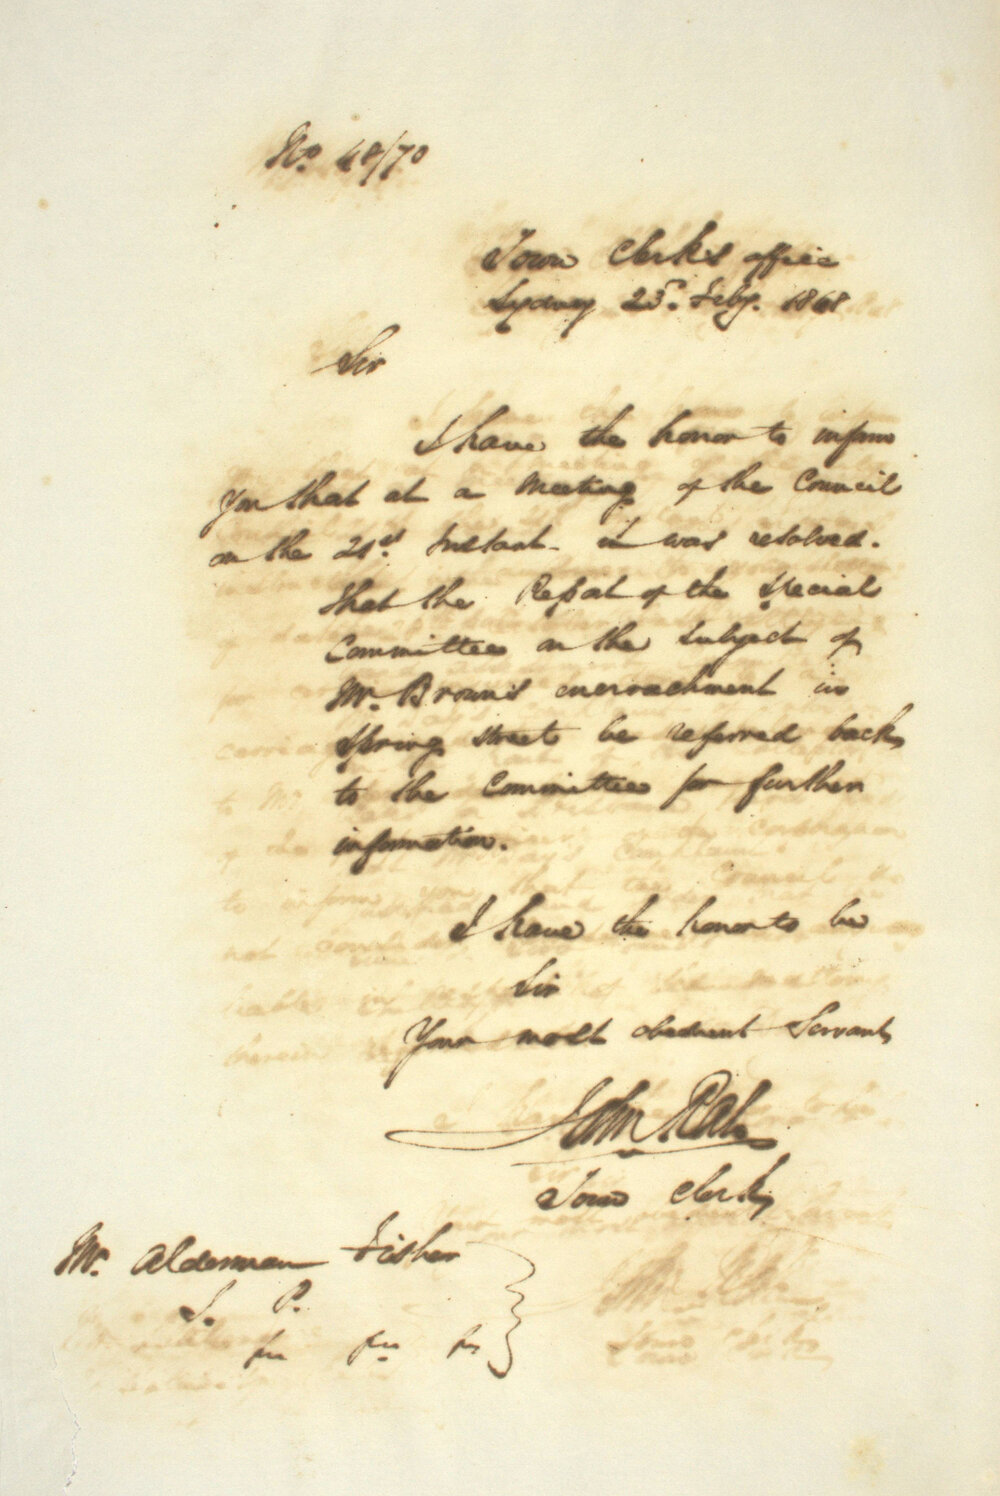 No. 48/70
Town Clerk's office
Sydney 23rd. Feby. 1848
Sir
I have the honor to inform
you that at a Meeting of the Council
on the 21st. Instant. it was resolved.
That the Report of the Special
Committee on the subject of
Mr. Brown's encroachment in
Spring street be referred back
to the Committee for further
information.
I have the honor to be
Sir
Your most obedient Servant
John Rae
Town Clerk
Mr. Alderman Fisher
J. P.